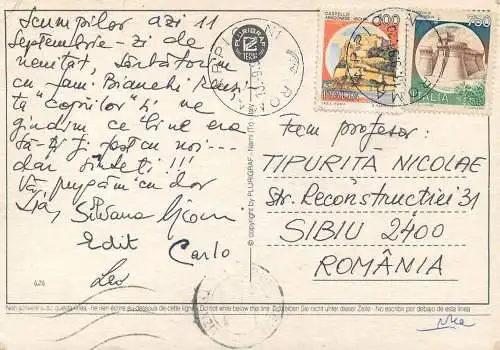 Scumpilor azi 11
Septembrie - zi de
neuitat, sărbătorim
cu fam. Bianchi
"copiilor" și ne
gîndim ce bine era
să-ți fi fost cu noi...
dar sînteți!!!
Vă cu dor
Lia, Silvana
Edit Carlo
Leo
Fam profesor:
TIPURITA NICOLAE
Str. Reconstructiei 31
SIBIU 2400
ROMÂNIA
PLURIGRAF
TERNI
ROMA
CASTELLO
ITALIA
750
ITALIA
© copyright by PLURIGRAF - Narni (Tr) Italy
626
Non scrivere sotto questa linea - ne rien écrire au-dessous de cette ligne - Do not write below this line - Schreiben Sie nicht unter dieser Zeile - No escribir por debajo de esta línea